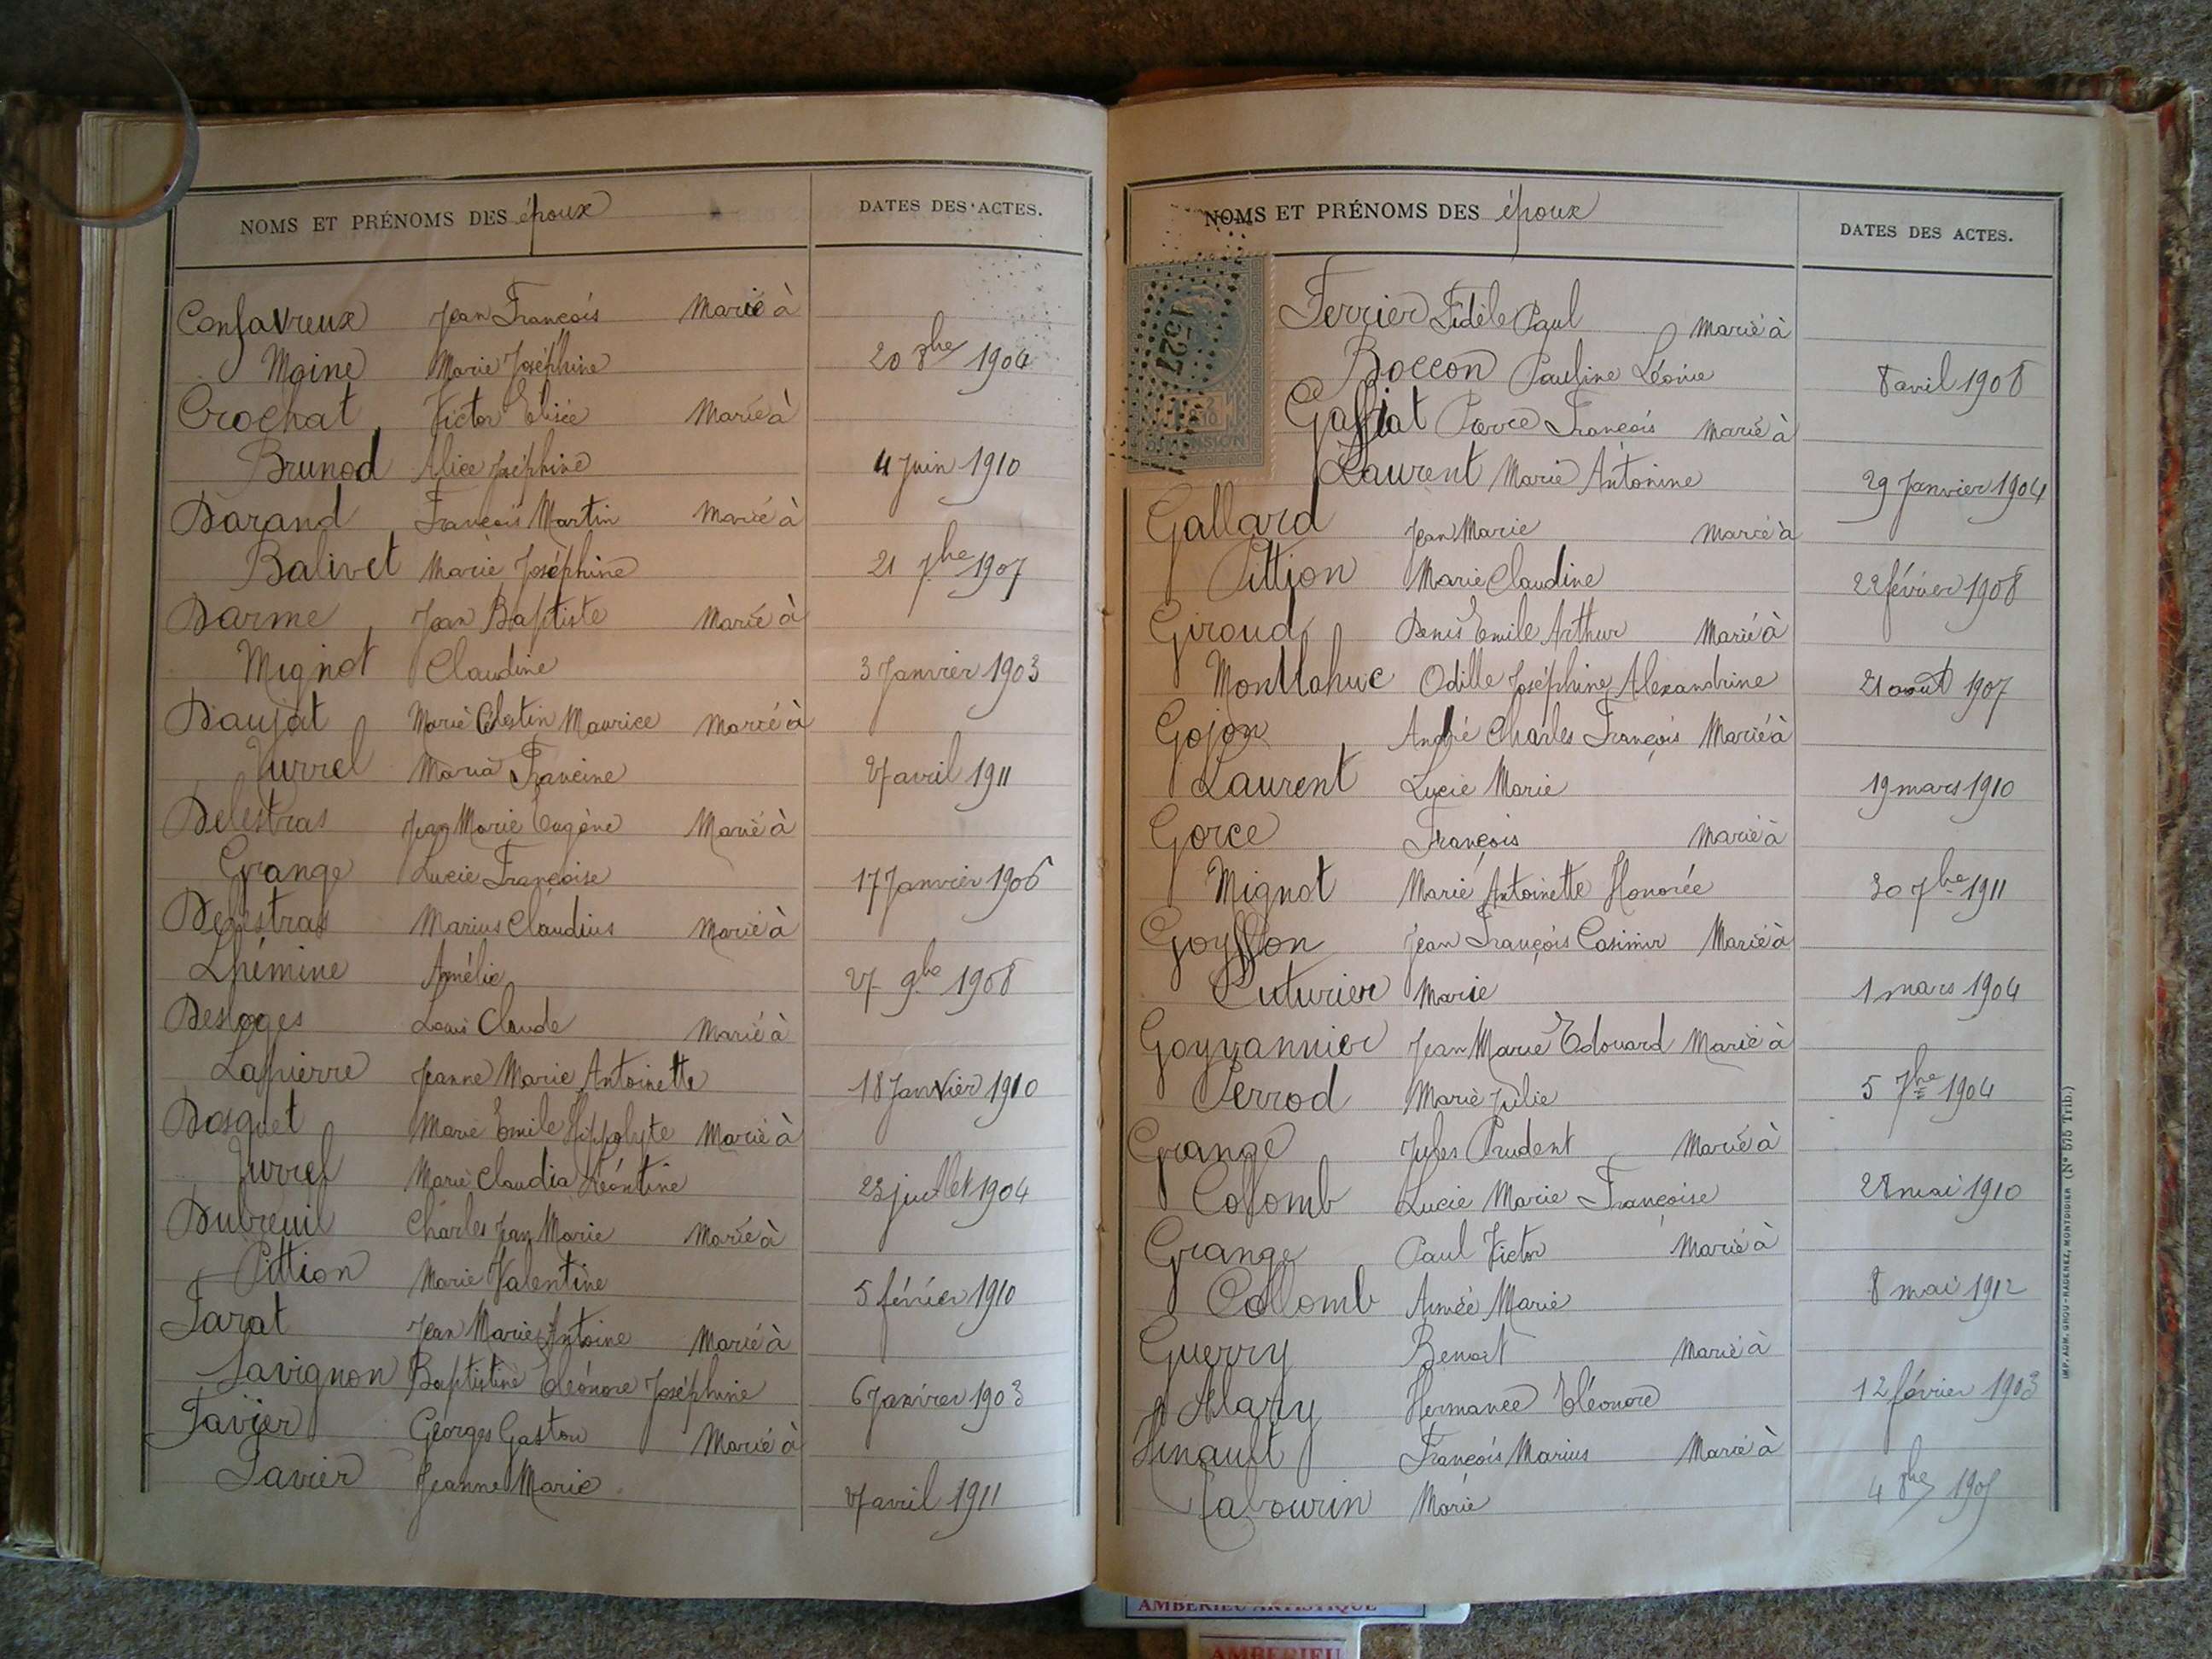 NOMS ET PRÉNOMS DES époux DATES DES ACTES.
Confavreux Jean François Marié à
Moine Marie Joséphine 20 8bre 1904
Crochat Victor Elisée Marié à
Brunod Alice Joséphine 4 Juin 1910
Darand François Martin Marié à
Balivet Marie Joséphine 21 7bre 1907
Darme Jean Baptiste Marié à
Mignot Claudine 3 Janvier 1903
Daujat Marie Célestin Maurice Marié à
Jurrel Maria Francine 27 avril 1911
Delestras Jean Marie Eugène Marié à
Grange Lucie Françoise 17 Janvier 1906
Delestras Marius Claudius Marié à
Lhémine Amélie 27 9bre 1908
Desloges Louis Claude Marié à
Lapierre Jeanne Marie Antoinette 18 Janvier 1910
Dosquet Marie Emile Hippolyte Marié à
Jurrel Marie Claudia Léontine 23 juillet 1904
Dubreuil Charles Jean Marie Marié à
Pittion Marie Valentine 5 février 1910
Farat Jean Marie Antoine Marié à
Savignon Baptistine Eléonore Joséphine 6 Janvier 1903
Favier Georges Gaston Marié à
Favier Jeanne Marie 27 avril 1911
NOMS ET PRÉNOMS DES époux DATES DES ACTES.
Ferrier Fidèle Paul Marié à
Boccon Pauline Léonie 8 avril 1908
Gaffiat Pierre François Marié à
Laurent Marie Antonine 29 Janvier 1904
Gallard Jean Marie Marié à
Pittion Marie Claudine 22 février 1908
Giroud Denis Emile Arthur Marié à
Montlahuc Odille Joséphine Alexandrine 21 août 1907
Gojon André Charles François Marié à
Laurent Lucie Marie 19 mars 1910
Gorce François Marié à
Mignot Marie Antoinette Honorée 30 7bre 1911
Goyffon Jean François Casimir Marié à
Cuturier Marie 1 mars 1904
Goyvannier Jean Marie Edouard Marié à
Perrod Marie Julie 5 7bre 1904
Grange Jules Prudent Marié à
Collomb Lucie Marie Françoise 28 mai 1910
Grange Paul Victor Marié à
Collomb Aimée Marie 8 mai 1912
Guerry Benoit Marié à
Alary Hermance Eléonore 12 février 1903
Hinault François Marius Marié à
Tabourin Marie 4 8bre
IMP. ADM. GROU-RADENEZ, MONTDIDIER (N° 575 Trib.)
AMBERIEU ARTISTIQUE
AMBERIEU